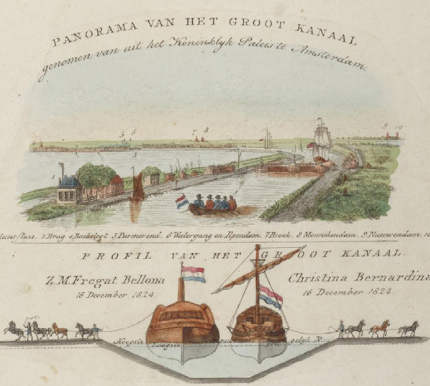 PANORAMA VAN HET GROOT KANAAL
genomen van uit het Koninklyk Paleis te Amsterdam.
5 6
7 8
9 10
2 Brug 5 Purmerend. 6 Watergang en Ilpendam 7 Broek. 8 Monnikendam. 9 Nieuwendam.
PROFIL VAN HET GROOT KANAAL.
Z.M. Fregat Bellona
16 December 1824.
Christina Bernardina
16 December 1824.
Hoogste
Laagste